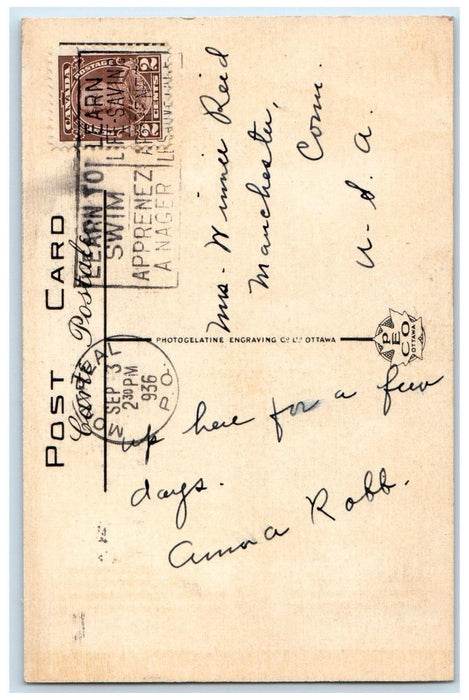 POST CARD
Carte Postale
CANADA
POSTAGE
2 CENTS 2
LEARN TO SWIM
LEARN LIFE-SAVING
APPRENEZ A NAGER
MONTREAL
SEP 3
2 30 PM
936
P.Q.
up here for a few
days.
Robb.
PHOTOGELATINE ENGRAVING CO. LTD. OTTAWA
PECO
OTTAWA
Mrs. Winnie Reid
Manchester,
Conn.
U.S.A.